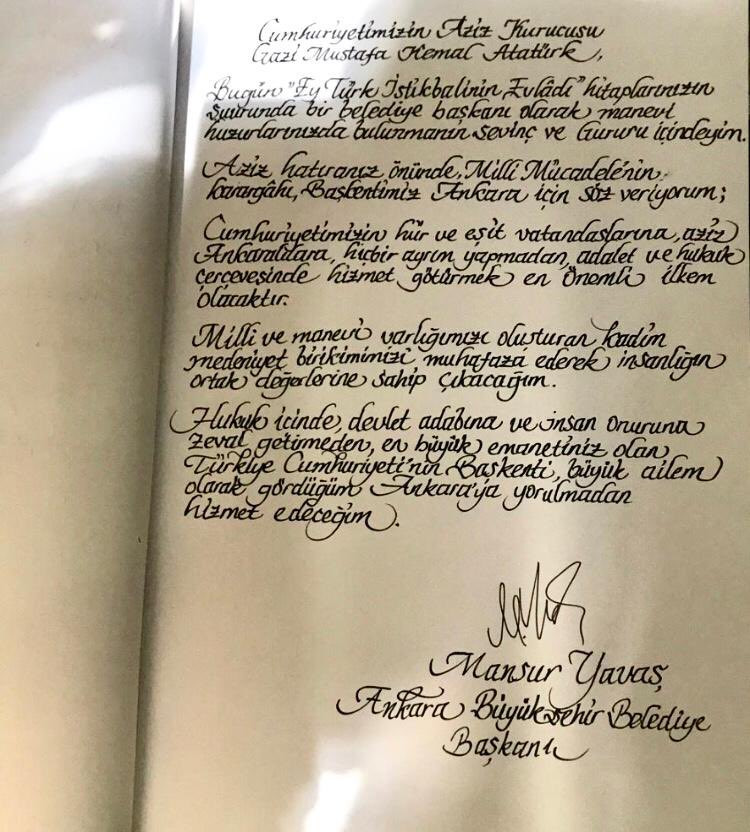 Cumhuriyetimizin Aziz Kurucusu
Gazi Mustafa Kemal Atatürk,
Bugün "Ey Türk İstikbalinin Evlâdı" hitaplarınızın
şuurunda bir belediye başkanı olarak manevi
huzurlarınızda bulunmanın sevinç ve Gururu içindeyim.
Aziz hatıranız önünde, Milli Mücadele'nin
karargâhı, Başkentimiz Ankara için söz veriyorum;
Cumhuriyetimizin hür ve eşit vatandaşlarına, aziz
Ankaralılara, hiçbir ayrım yapmadan, adalet ve hukuk
çerçevesinde hizmet götürmek en önemli ilkem
olacaktır.
Milli ve manevi varlığımızı oluşturan kadim
medeniyet birikimimizi muhafaza ederek insanlığın
ortak değerlerine sahip çıkacağım.
Hukuk içinde, devlet adabına ve insan onuruna
zeval getirmeden, en büyük emanetiniz olan
Türkiye Cumhuriyeti'nin Başkenti, büyük ailem
olarak gördüğüm Ankara'ya yorulmadan
hizmet edeceğim.
Mansur Yavaş
Ankara Büyükşehir Belediye
Başkanı